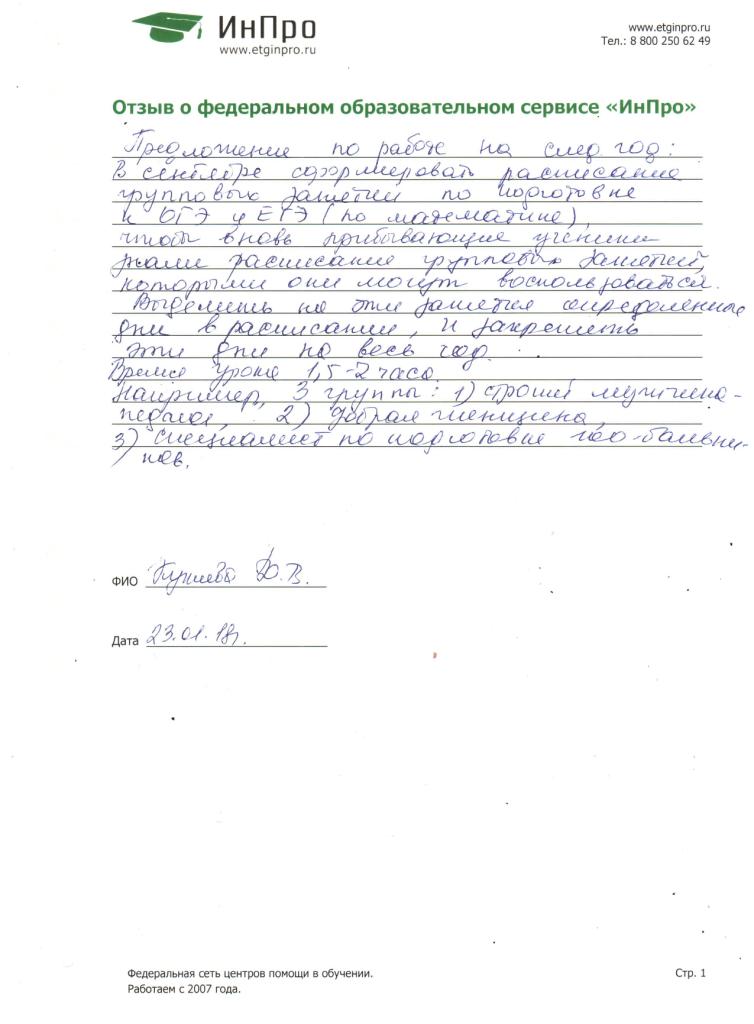 ИнПро
www.etginpro.ru
www.etginpro.ru
Тел.: 8 800 250 62 49
Отзыв о федеральном образовательном сервисе «ИнПро»
Предложение по работе на след год:
В сентябре сформировать расписание
групповых занятий по подготовке
к ОГЭ и ЕГЭ (по математике),
чтобы вновь прибывающие ученики
знали расписание групповых занятий,
которыми они могут воспользоваться.
Выделить на эти занятия определенные
дни в расписании, и закрепить
эти дни на весь год.
Время урока 1,5-2 часа.
Например, 3 группы: 1) строгий мужчина-
педагог, 2) добрая женщина,
3) специалист по подготовке 100-бальни-
ков.
ФИО Д.В.
Дата 23.01.18г.
Федеральная сеть центров помощи в обучении.
Работаем с 2007 года.
Стр. 1